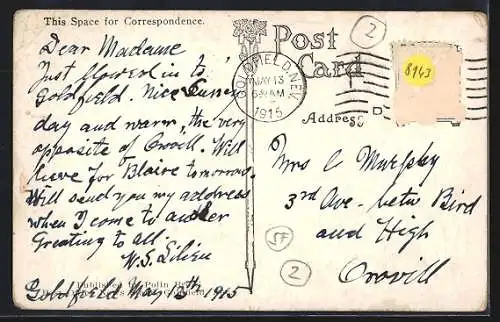 This Space for Correspondence.
Dear Madame
Just flowed in to
Goldfield. Nice Sunny
day and warm, the very
opposite of Orovill. Will
leave for Blaire tomorrow.
Will send you my address
when I come to another
Greating to all.
W. S.
Published by Polin
Goldfield May 13th 1915
Post
Card
GOLDFIELD, NEV.
MAY 13
AM
1915
D
2
8143
Address
Mrs C Murphy
3rd Ave. betw Bird
and High
Orovill
57
2